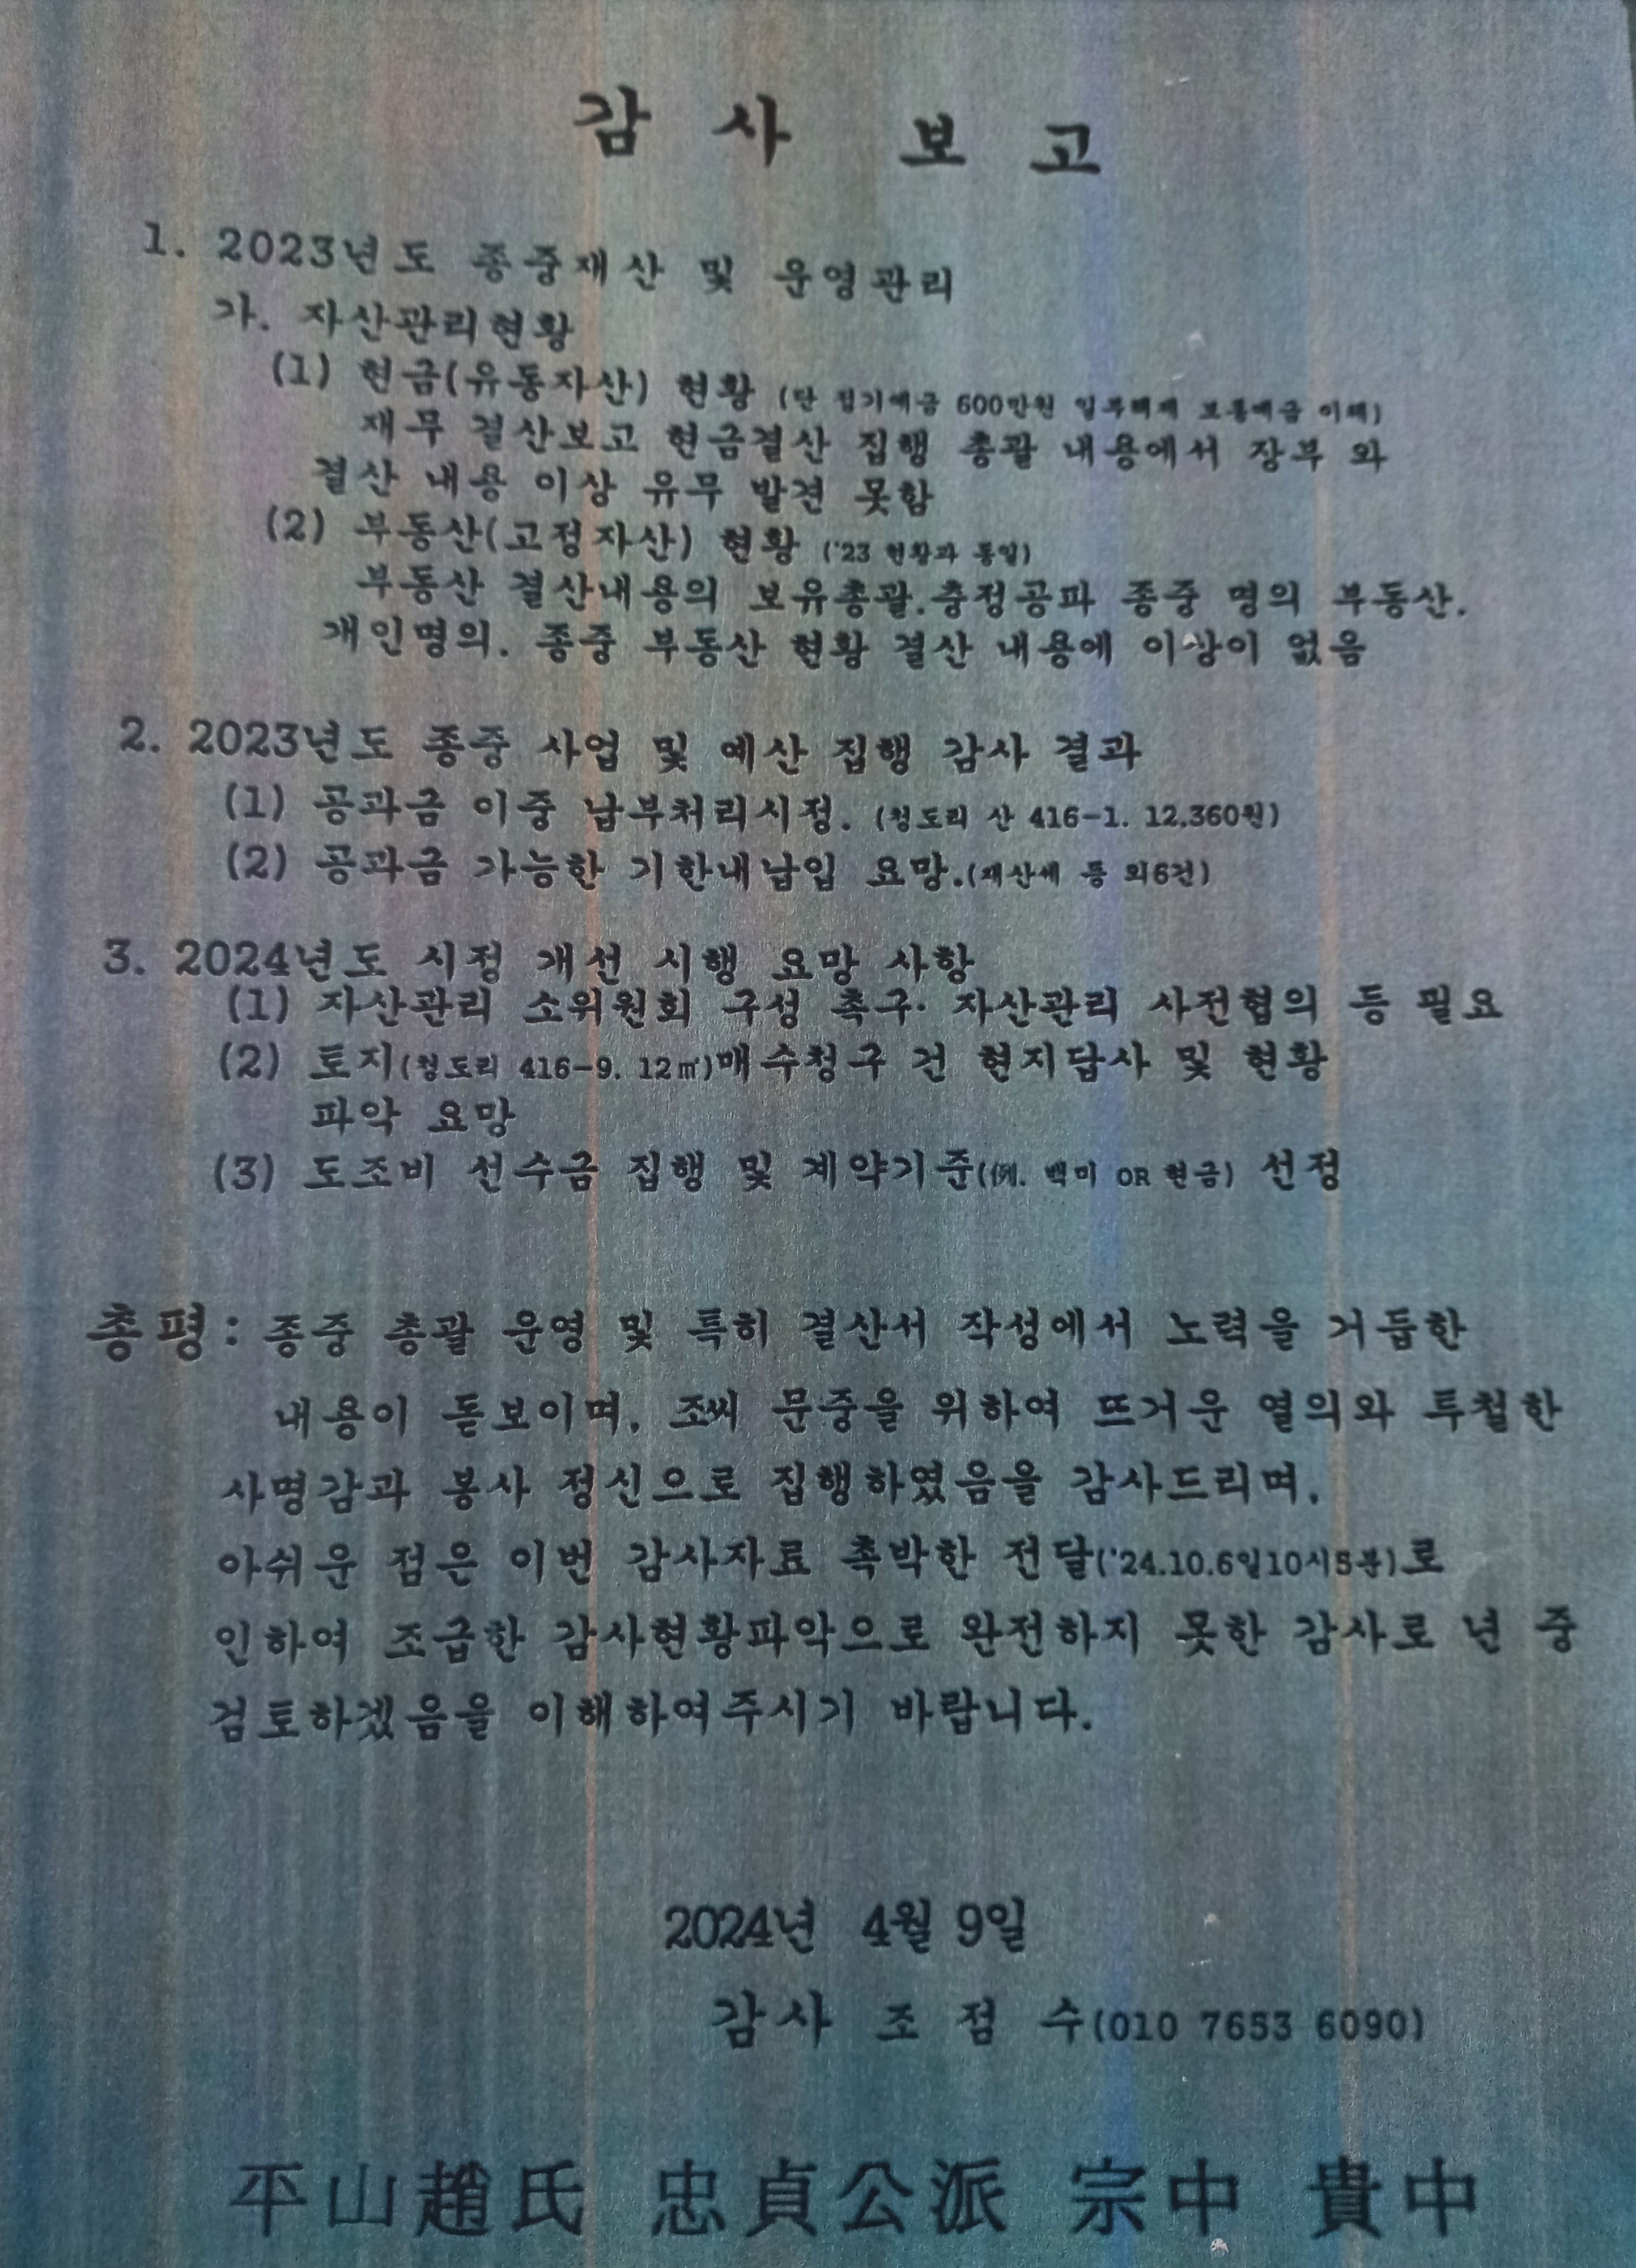 감 사 보 고
1. 2023년도 종중재산 및 운영관리
가. 자산관리현황
(1) 현금(유동자산) 현황 (단 정기예금 600만원 일부해제 보통예금 이체)
재무 결산보고 현금결산 집행 총괄 내용에서 장부 와
결산 내용 이상 유무 발견 못함
(2) 부동산(고정자산) 현황 ('23 현황과 동일)
부동산 결산내용의 보유총괄.충정공파 종중 명의 부동산.
개인명의. 종중 부동산 현황 결산 내용에 이상이 없음
2. 2023년도 종중 사업 및 예산 집행 감사 결과
(1) 공과금 이중 납부처리시정. (청도리 산 416-1. 12,360원)
(2) 공과금 가능한 기한내납입 요망.(재산세 등 외6건)
3. 2024년도 시정 개선 시행 요망 사항
(1) 자산관리 소위원회 구성 촉구· 자산관리 사전협의 등 필요
(2) 토지(청도리 416-9. 12㎡)매수청구 건 현지답사 및 현황
파악 요망
(3) 도조비 선수금 집행 및 계약기준((例. 백미 OR 현금) 선정
총평: 종중 총괄 운영 및 특히 결산서 작성에서 노력을 거듭한
내용이 돋보이며, 조씨 문중을 위하여 뜨거운 열의와 투철한
사명감과 봉사 정신으로 집행하였음을 감사드리며,
아쉬운 점은 이번 감사자료 촉박한 전달('24.10.6일10시5분)로
인하여 조급한 감사현황파악으로 완전하지 못한 감사로 년 중
검토하겠음을 이해하여주시기 바랍니다.
2024년 4월 9일
감사 조 점 수(010 7653 6090)
平山趙氏 忠貞公派 宗中 貴中